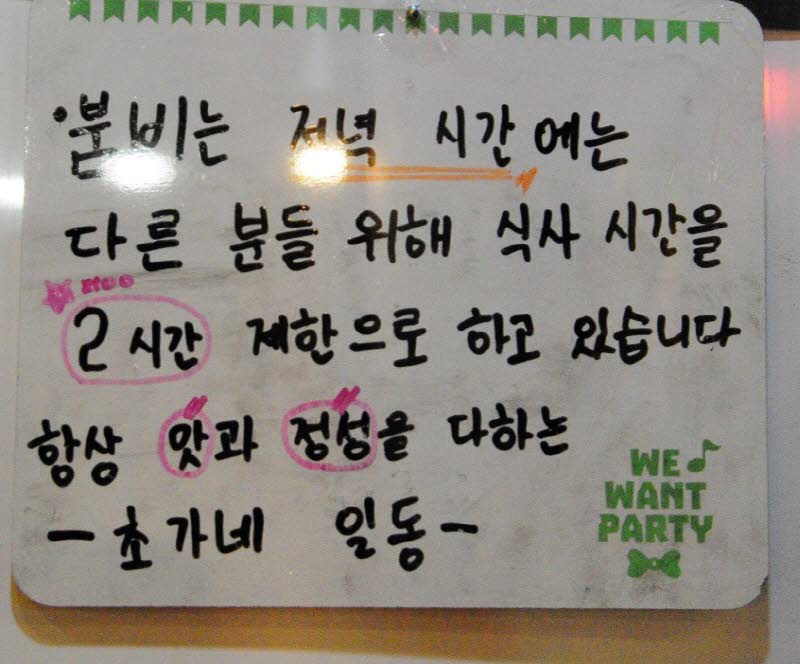 ·붐비는 저녁 시간에는
다른 분들 위해 식사 시간을
2시간 제한으로 하고 있습니다
항상 맛과 정성을 다하는
-초가네 일동-
WE
WANT
PARTY